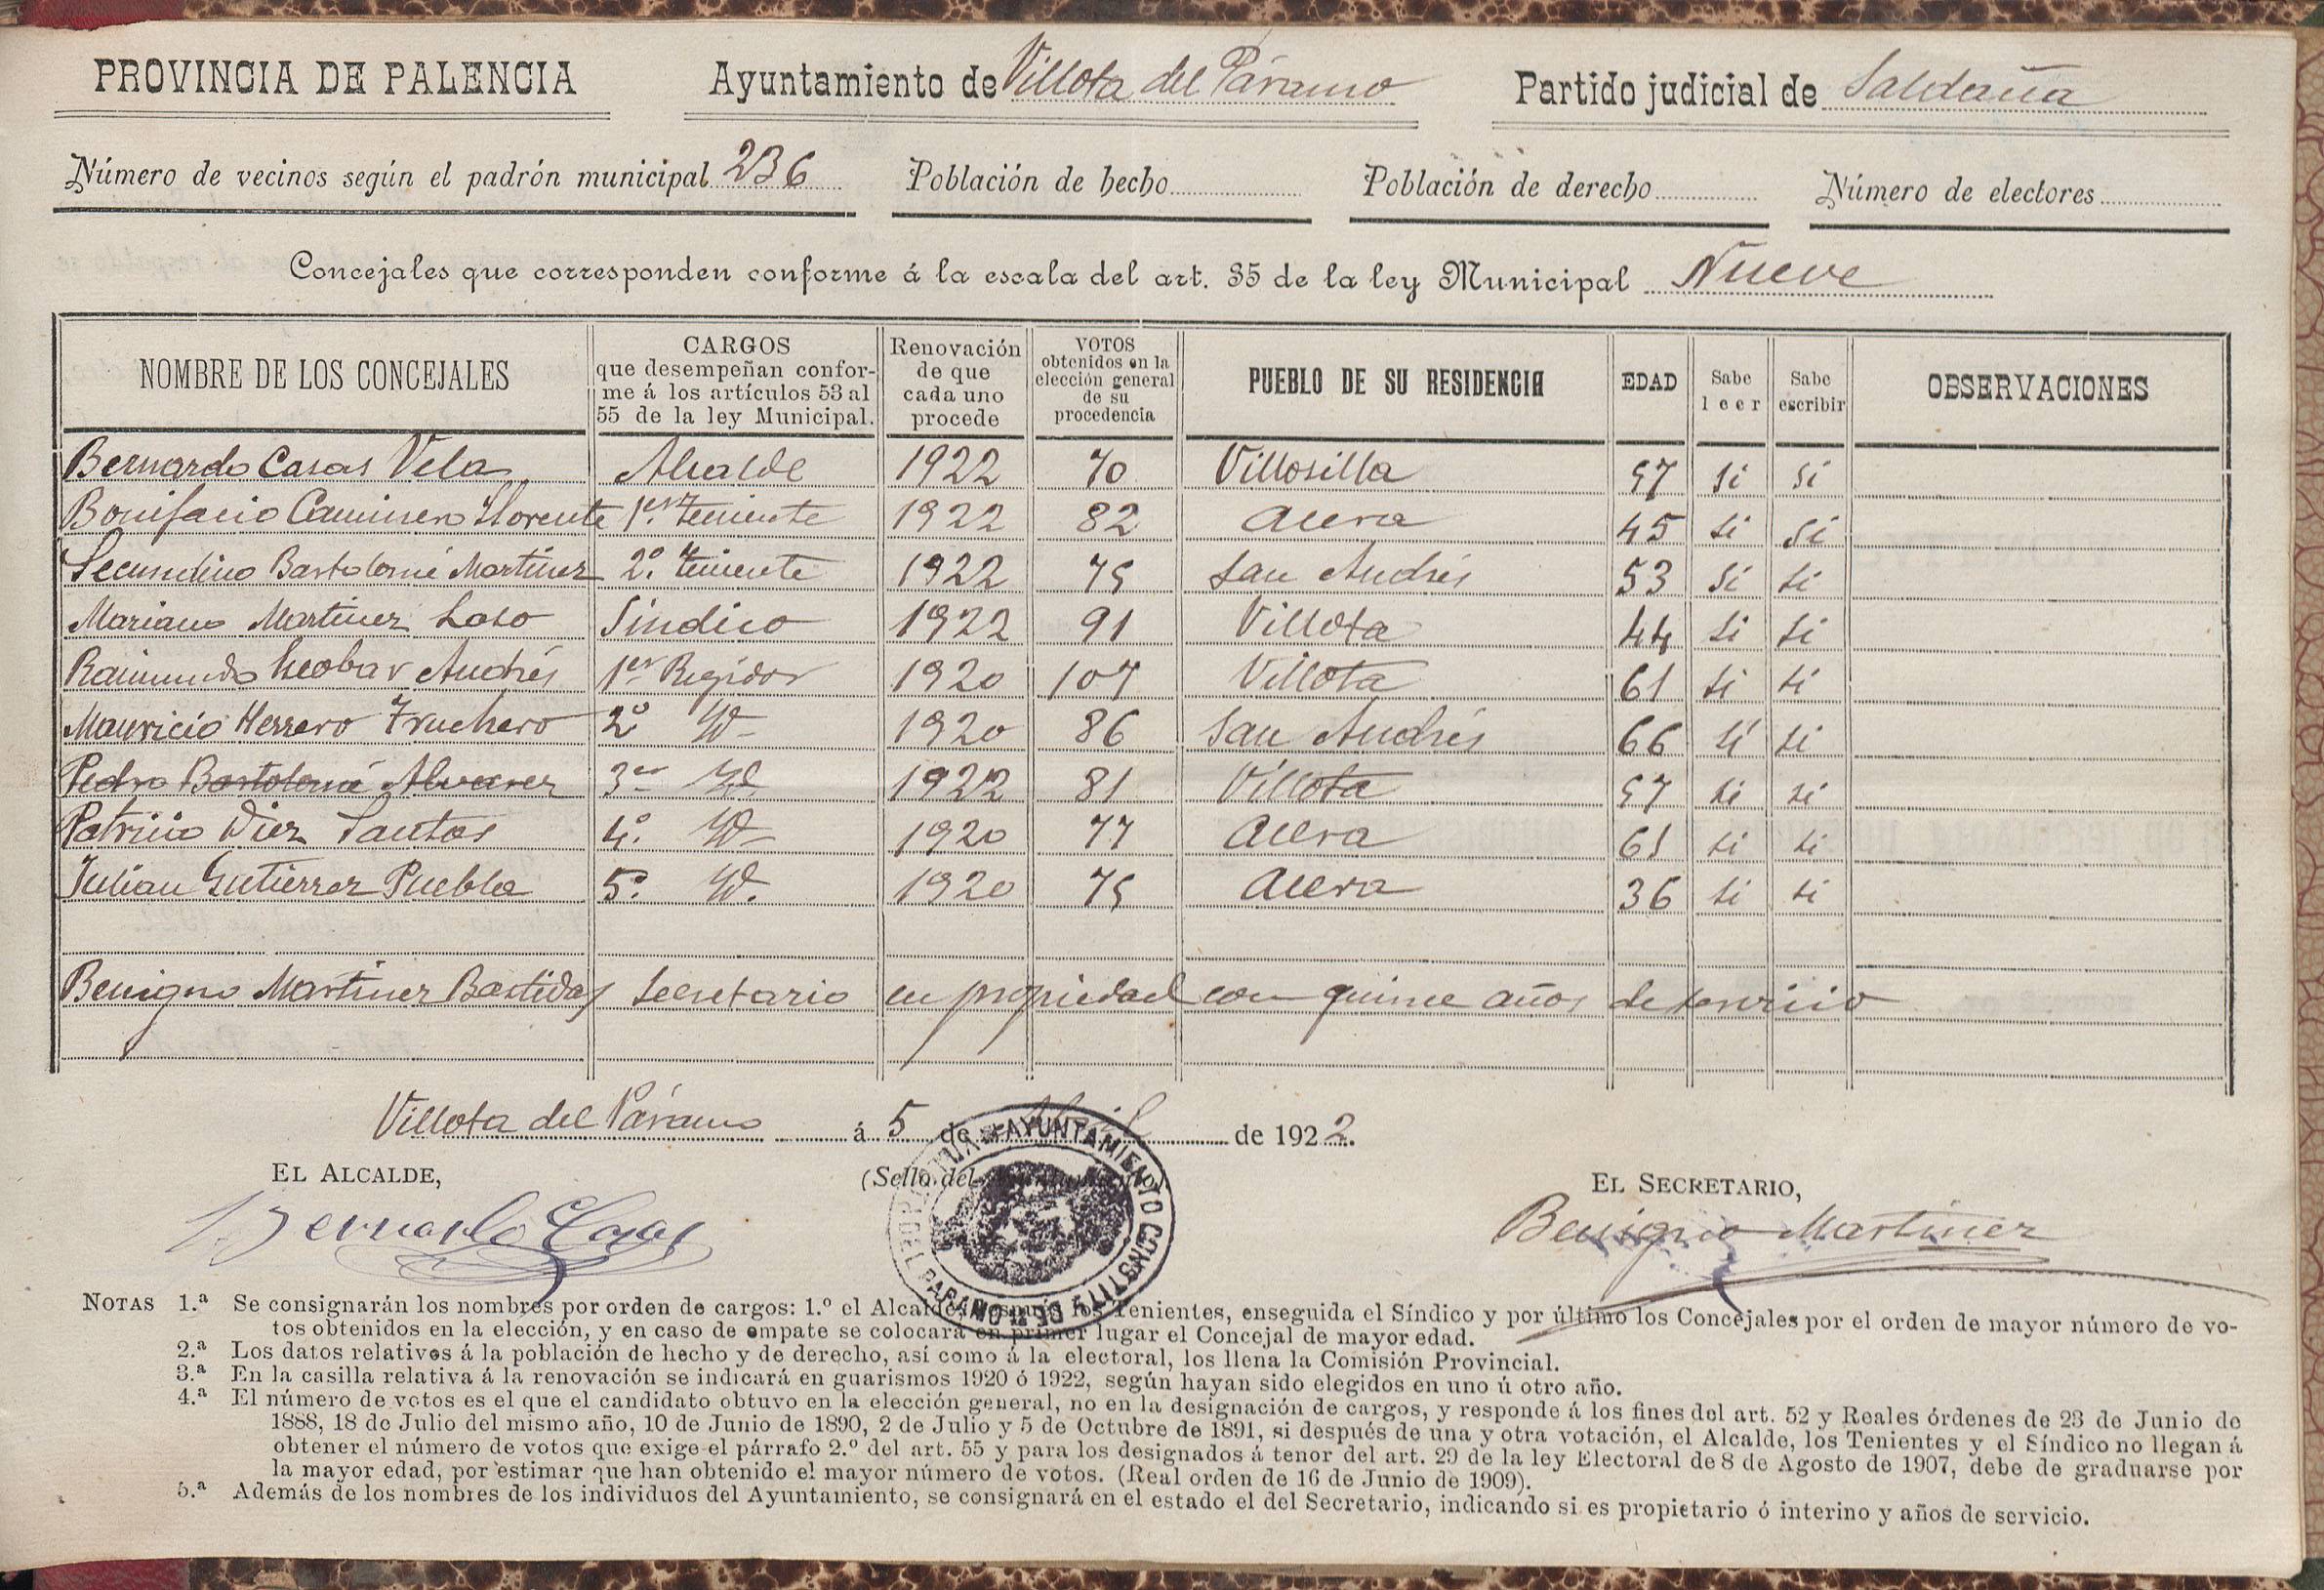 PROVINCIA DE PALENCIA Ayuntamiento de Villota del Páramo Partido judicial de Saldaña
Número de vecinos según el padrón municipal 236 Población de hecho Población de derecho Número de electores
Concejales que corresponden conforme á la escala del art. 35 de la ley Municipal Nueve
NOMBRE DE LOS CONCEJALES
CARGOS
que desempeñan confor-
me á los artículos 53 al
55 de la ley Municipal.
Renovación
de que
cada uno
procede
VOTOS
obtenidos en la
elección general
de su
procedencia
PUEBLO DE SU RESIDENCIA
EDAD
Sabe
leer
Sabe
escribir
OBSERVACIONES
Bernardo Casas Vela Alcalde 1922 70 Villosilla 57 si si
Bonifacio Caminero Llorente 1er. Teniente 1922 82 Acera 45 si si
Secundino Bartolomé Martinez 2º. Teniente 1922 75 San Andrés 53 si si
Mariano Martinez Laso Sindico 1922 91 Villota 44 si si
Raimundo Escobar Andrés 1er Regidor 1920 107 Villota 61 si si
Mauricio Herrero Truchero 2º Id 1920 86 San Andrés 66 si si
Pedro Bartolomé Alvarez 3er Id. 1922 81 Villota 57 si si
Patricio Diez Santos 4º. Id 1920 77 Acera 61 si si
Julian Gutierrez Puebla 5º. Id. 1920 75 Acera 36 si si
Benigno Martinez Bastidas Secretario en propiedad con quince años de servicio
Villota del Páramo á 5 de Abril de 1922.
EL ALCALDE, (Sello del Ayuntamiento) EL SECRETARIO,
AYUNTAMIENTO CONSTITL DE VILLOTA DEL PARAMO
Bernardo Casas Benigno Martinez
NOTAS 1.ª Se consignarán los nombres por orden de cargos: 1.º el Alcalde, después los Tenientes, enseguida el Síndico y por último los Concejales por el orden de mayor número de vo-
tos obtenidos en la elección, y en caso de empate se colocará en primer lugar el Concejal de mayor edad.
2.ª Los datos relativos á la población de hecho y de derecho, así como á la electoral, los llena la Comisión Provincial.
3.ª En la casilla relativa á la renovación se indicará en guarismos 1920 ó 1922, según hayan sido elegidos en uno ú otro año.
4.ª El número de votos es el que el candidato obtuvo en la elección general, no en la designación de cargos, y responde á los fines del art. 52 y Reales órdenes de 23 de Junio de
1888, 18 de Julio del mismo año, 10 de Junio de 1890, 2 de Julio y 5 de Octubre de 1891, si después de una y otra votación, el Alcalde, los Tenientes y el Síndico no llegan á
obtener el número de votos que exige el párrafo 2.º del art. 55 y para los designados á tenor del art. 29 de la ley Electoral de 8 de Agosto de 1907, debe de graduarse por
la mayor edad, por estimar que han obtenido el mayor número de votos. (Real orden de 16 de Junio de 1909).
5.ª Además de los nombres de los individuos del Ayuntamiento, se consignará en el estado el del Secretario, indicando si es propietario ó interino y años de servicio.